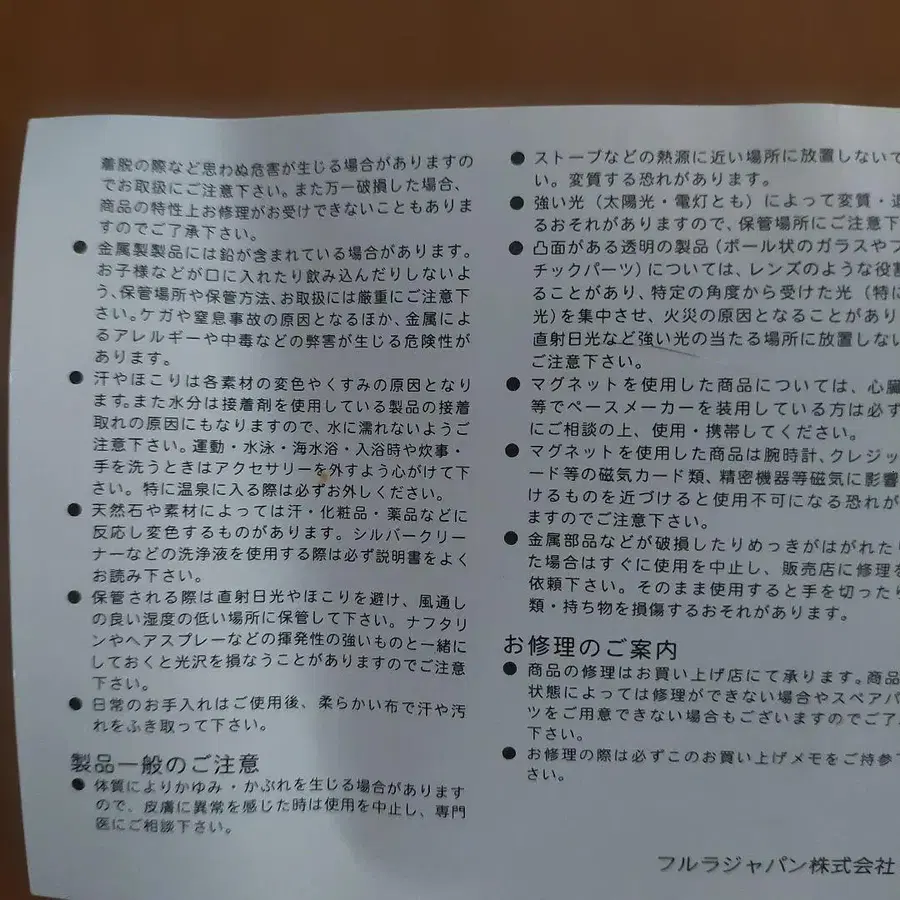 着脱の際など思わぬ危害が生じる場合がありますの
でお取扱にご注意下さい。また万一破損した場合、
商品の特性上お修理がお受けできないこともありま
すのでご了承下さい。
● 金属製製品には鉛が含まれている場合があります。
お子様などが口に入れたり飲み込んだりしないよ
う、保管場所や保管方法、お取扱には厳重にご注意下
さい。ケガや窒息事故の原因となるほか、金属によ
るアレルギーや中毒などの弊害が生じる危険性が
あります。
● 汗やほこりは各素材の変色やくすみの原因となり
ます。また水分は接着剤を使用している製品の接着
取れの原因にもなりますので、水に濡れないようご
注意下さい。運動・水泳・海水浴・入浴時や炊事・
手を洗うときはアクセサリーを外すよう心がけて下
さい。特に温泉に入る際は必ずお外しください。
● 天然石や素材によっては汗・化粧品・薬品などに
反応し変色するものがあります。シルバークリー
ナーなどの洗浄液を使用する際は必ず説明書をよく
お読み下さい。
● 保管される際は直射日光やほこりを避け、風通し
の良い湿度の低い場所に保管して下さい。ナフタリ
ンやヘアスプレーなどの揮発性の強いものと一緒に
しておくと光沢を損なうことがありますのでご注意
下さい。
● 日常のお手入れはご使用後、柔らかい布で汗や汚
れをふき取って下さい。
製品一般のご注意
● 体質によりかゆみ・かぶれを生じる場合があります
ので、皮膚に異常を感じた時は使用を中止し、専門
医にご相談下さい。
● ストーブなどの熱源に近い場所に放置しないで
い。変質する恐れがあります。
● 強い光（太陽光・電灯とも）によって変質・退
るおそれがありますので、保管場所にご注意下
● 凸面がある透明の製品（ボール状のガラスやプ
チックパーツ）については、レンズのような役割
ることがあり、特定の角度から受けた光（特に
光）を集中させ、火災の原因となることがあり
直射日光など強い光の当たる場所に放置しない
ご注意下さい。
● マグネットを使用した商品については、心臓
等でペースメーカーを装用している方は必ず
にご相談の上、使用・携帯してください。
● マグネットを使用した商品は腕時計、クレジッ
ード等の磁気カード類、精密機器等磁気に影響
けるものを近づけると使用不可になる恐れが
ますのでご注意下さい。
● 金属部品などが破損したりめっきがはがれたり
た場合はすぐに使用を中止し、販売店に修理を
依頼下さい。そのまま使用すると手を切ったり
類・持ち物を損傷するおそれがあります。
お修理のご案内
● 商品の修理はお買い上げ店にて承ります。商品
状態によっては修理ができない場合やスペアパ
ツをご用意できない場合もございますのでご了
下さい。
● お修理の際は必ずこのお買い上げメモをご持参下
さい。
フルラジャパン株式会社